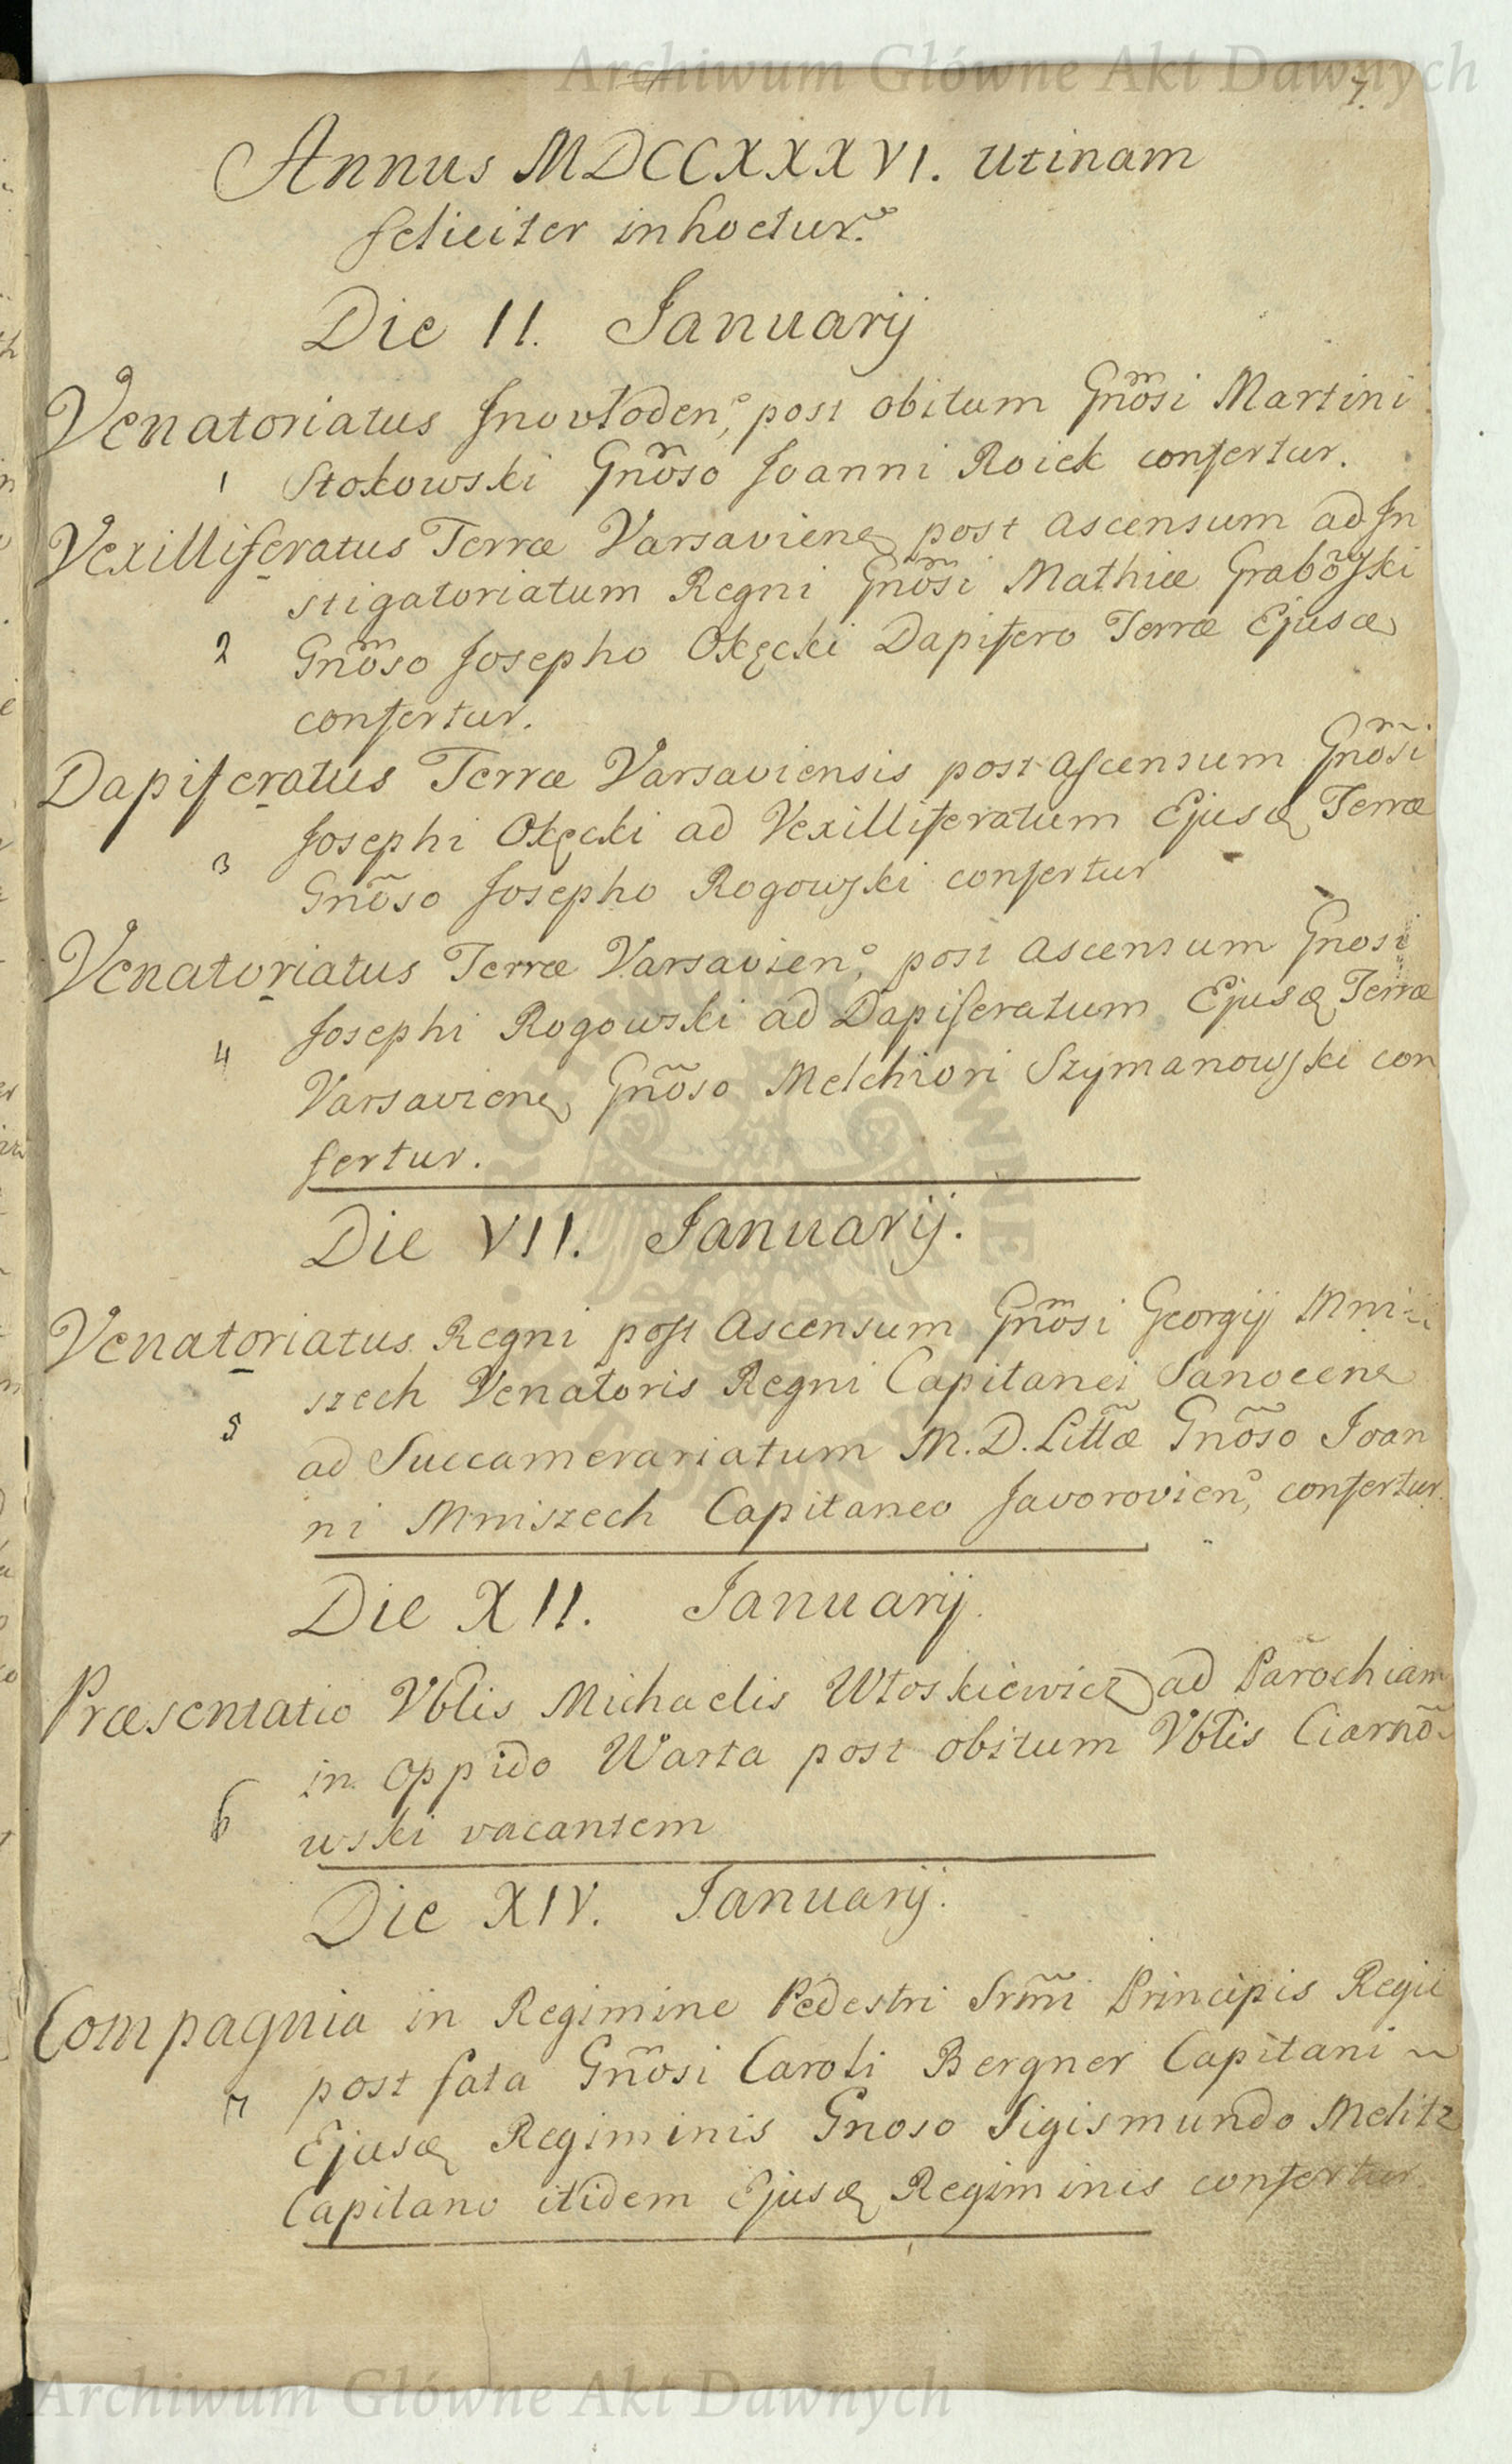 Archiwum Główne Akt Dawnych
7.
Annus MDCCXXXVI. Utinam
feliciter inhoetur.
Die II. Januarij
Venatoriatus Inovłoden, post obitum Gnõsi Martini
1 Stokowski Gnõso Joanni Roick confertur.
Vexilliferatus Terræ Varsavien post ascensum ad In
stigatoriatum Regni Gnõsi Mathiæ Grabõski
2 Gnõso Josepho Okęcki Dapifero Terræ Ejusd
confertur.
Dapiferatus Terræ Varsaviensis post ascensum Gnõsi
Josephi Okęcki ad Vexilliferatum Ejusd Terræ
3 Gnõso Josepho Rogowski confertur
Venatoriatus Terræ Varsavien, post ascensum Gnosi
Josephi Rogowski ad Dapiferatum Ejusd Terræ
4 Varsavien Gnõso Melchiori Szymanowski con
fertur.
Die VII. Januarij.
Venatoriatus Regni post Ascensum Gnõsi Georgij Mni-
szech Venatoris Regni Capitanei Sanocen
5 ad Succamerariatum M.D.Littæ Gnõso Joan
ni Mniszech Capitaneo Javorovien, confertur.
Die XII. Januarij.
Præsentatio Vblis Michaelis Włoskiewicz ad Parochiam
in oppido Warta post obitum Vblis Ciarnõ-
6 wski vacantem
Die XIV. Januarij.
Compagnia in Regimine Pedestri Srm̃i Principis Regii
post fata Gnõsi Caroli Bergner Capitani
7 Ejusd Regiminis Gnoso Sigismundo Melitz
Capitano itidem Ejusd Regiminis confertur.
Archiwum Główne Akt Dawnych